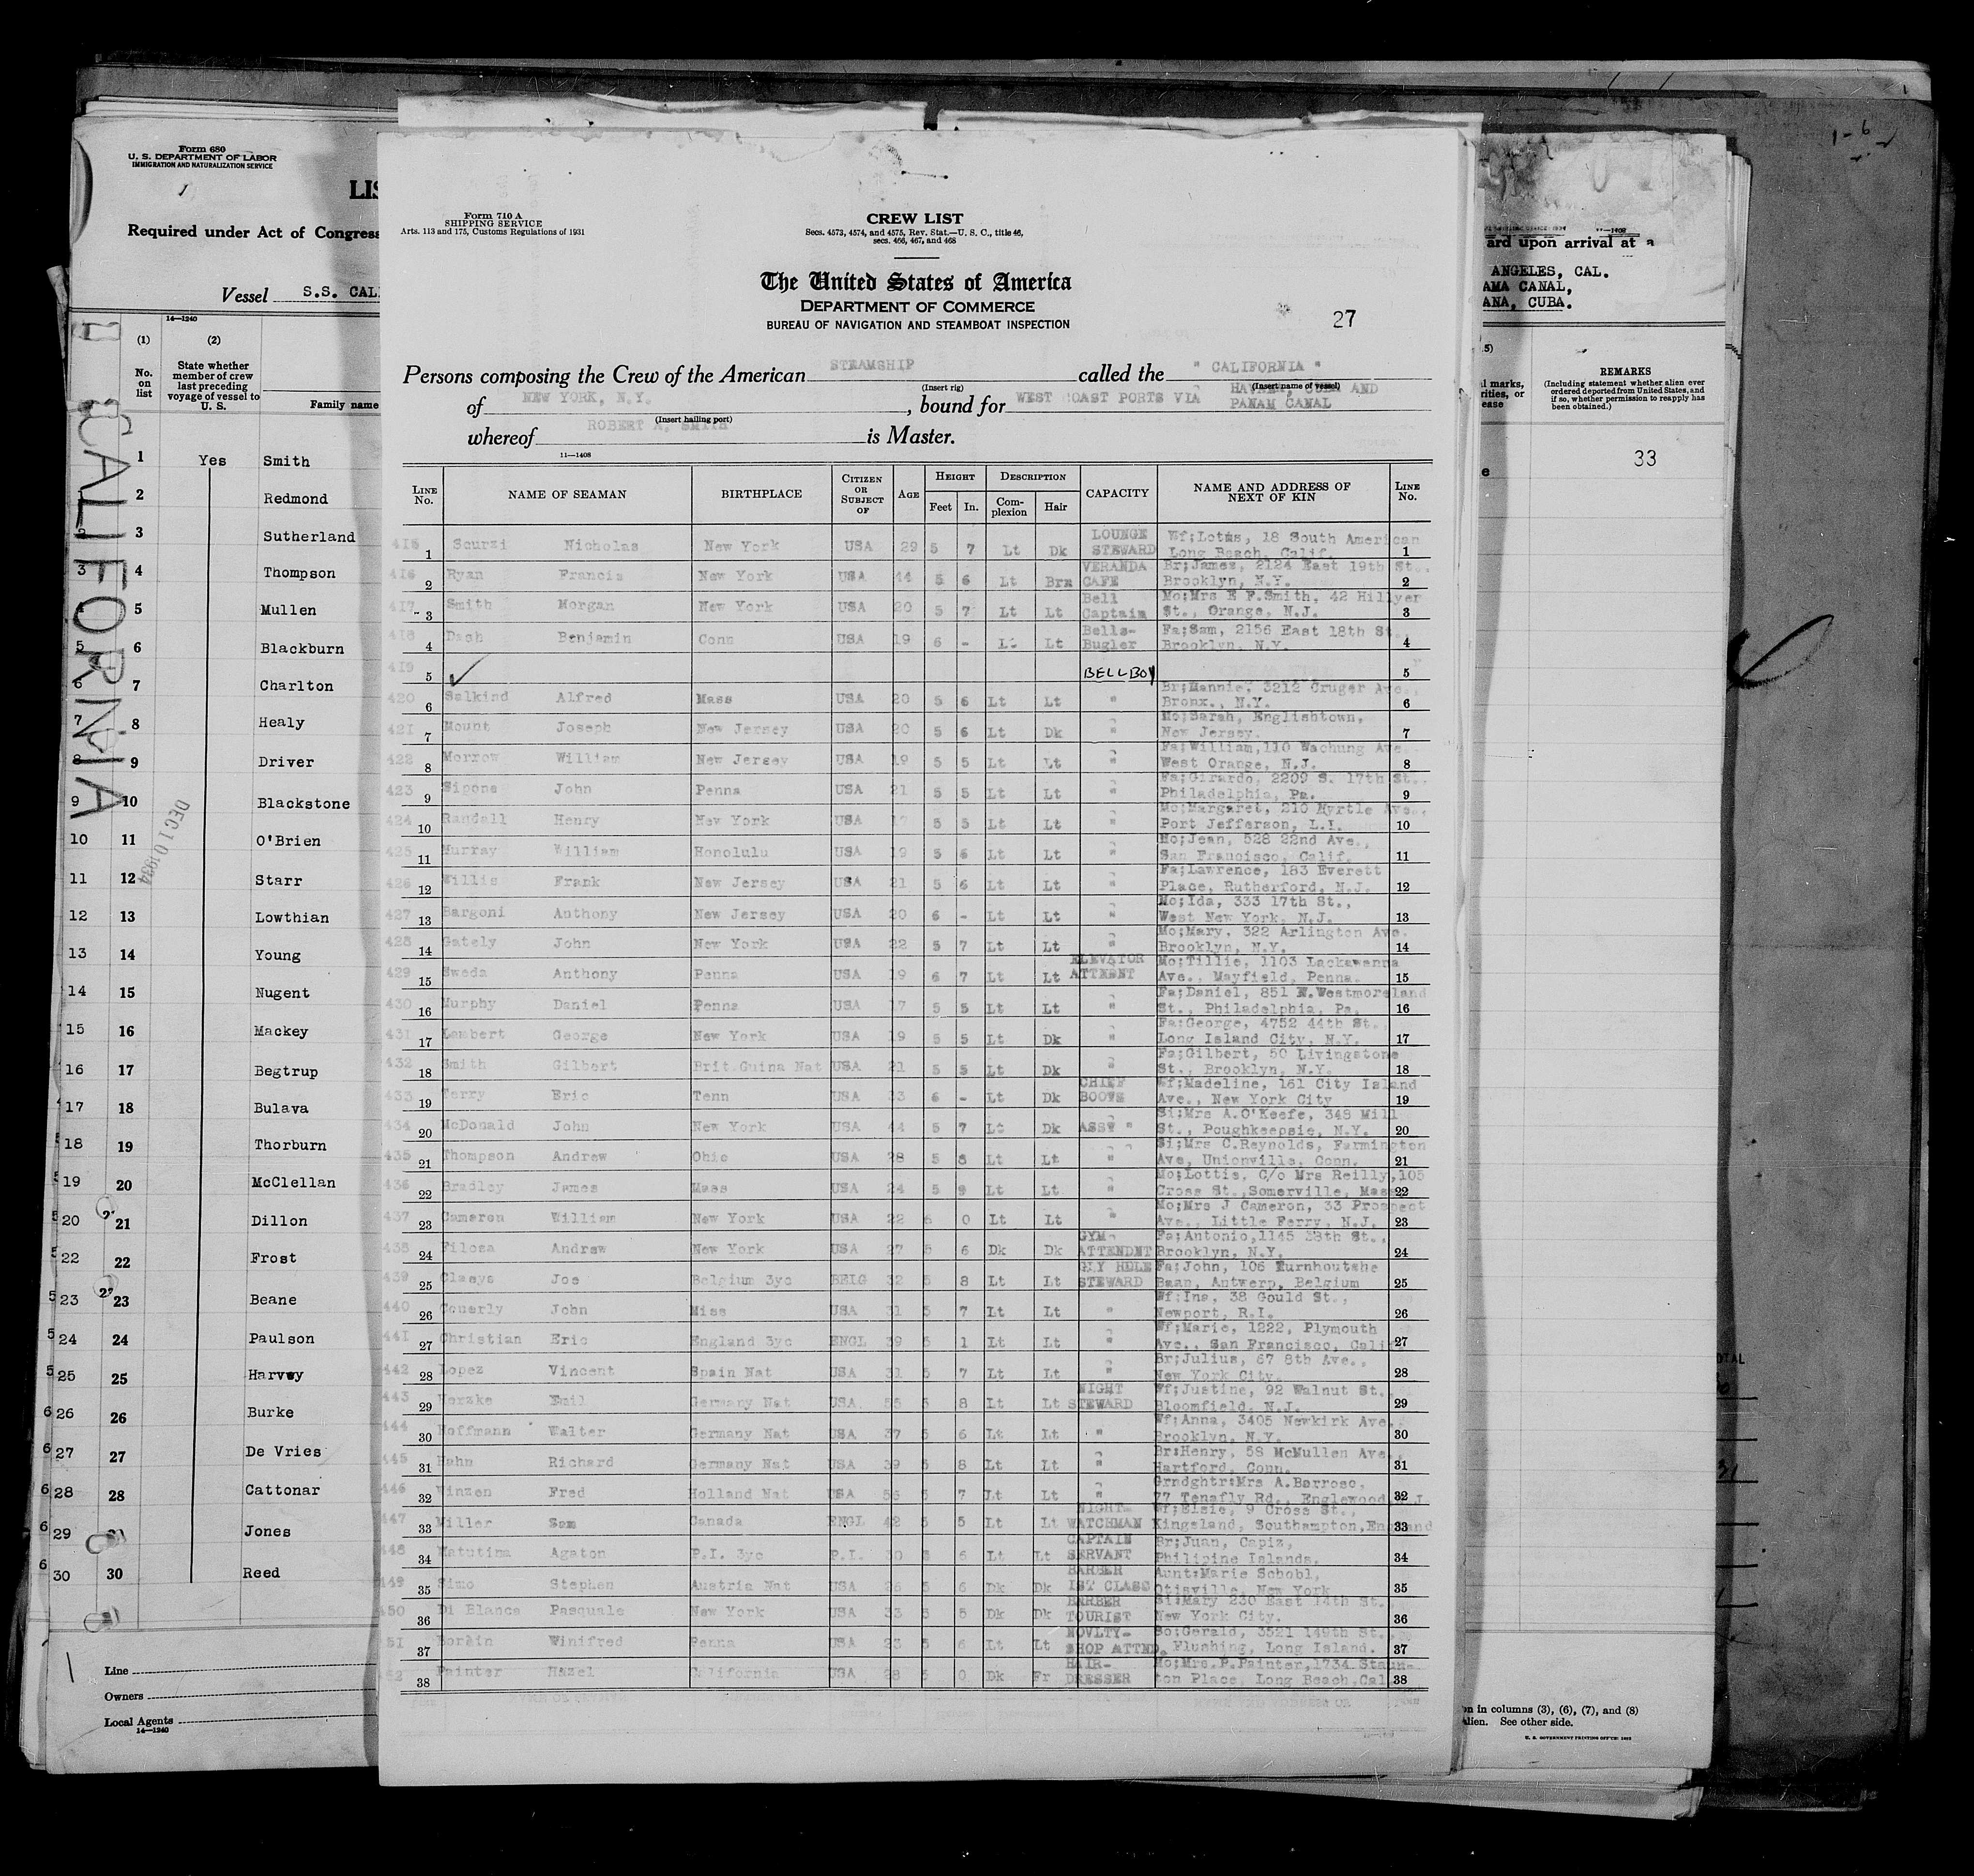 Form 680
U. S. DEPARTMENT OF LABOR
IMMIGRATION AND NATURALIZATION SERVICE
LIS
Required under Act of Congress
Vessel S.S. CALI
14—1240
(1) (2)
No. on list
State whether member of crew last preceding voyage of vessel to U. S.
Family name
CALIFORNIA
DEC 10 1934
1 Yes Smith
2 Redmond
3 Sutherland
3 4 Thompson
5 Mullen
5 6 Blackburn
6 7 Charlton
7 8 Healy
8 9 Driver
9 10 Blackstone
10 11 O'Brien
11 12 Starr
12 13 Lowthian
13 14 Young
14 15 Nugent
15 16 Mackey
16 17 Begtrup
17 18 Bulava
18 19 Thorburn
19 20 McClellan
20 21 Dillon
22 22 Frost
23 23 Beane
24 24 Paulson
25 25 Harvey
26 26 Burke
27 27 De Vries
28 28 Cattonar
29 Jones
30 30 Reed
Line
Owners
Local Agents
14—1240
Form 710 A
SHIPPING SERVICE
Arts. 113 and 175, Customs Regulations of 1931
CREW LIST
Secs. 4573, 4574, and 4575, Rev. Stat.—U. S. C., title 46,
secs. 466, 467, and 468
The United States of America
DEPARTMENT OF COMMERCE
BUREAU OF NAVIGATION AND STEAMBOAT INSPECTION
27
Persons composing the Crew of the American STEAMSHIP called the " CALIFORNIA "
(Insert rig) (Insert name of vessel)
of NEW YORK, N.Y. , bound for WEST COAST PORTS VIA HAVANA, CUBA AND
PANAM CANAL
(Insert hailing port)
whereof ROBERT A. SMITH is Master.
11—1408
LINE No. NAME OF SEAMAN BIRTHPLACE CITIZEN OR SUBJECT OF AGE HEIGHT Feet In. DESCRIPTION Complexion Hair CAPACITY NAME AND ADDRESS OF NEXT OF KIN LINE No.
415 1 Scurzi Nicholas New York USA 29 5 7 Lt Dk LOUNGE STEWARD Wf;Lotus, 18 South American Long Beach, Calif. 1
416 2 Ryan Francis New York USA 44 5 6 Lt Brn VERANDA CAFE Br;James, 2124 East 19th St., Brooklyn, N.Y. 2
417 3 Smith Morgan New York USA 20 5 7 Lt Lt Bell Captain Mo;Mrs E F.Smith, 42 Hillyer St., Orange, N.J. 3
418 4 Dash Benjamin Conn USA 19 6 - Lt Lt Bells-Bugler Fa;Sam, 2156 East 18th St. Brooklyn, N.Y. 4
419 5 ✓ BELLBOY 5
420 6 Salkind Alfred Mass USA 20 5 6 Lt Lt " Br;Mannie, 3212 Cruger Ave., Bronx., N.Y. 6
421 7 Mount Joseph New Jersey USA 20 5 6 Lt Dk " Mo;Sarah, Englishtown, New Jersey. 7
422 8 Morrow William New Jersey USA 19 5 5 Lt Lt " Fa;William,110 Wachung Ave. West Orange, N.J. 8
423 9 Sipone John Penna USA 21 5 5 Lt Lt " Fa;Girardo, 2209 S. 17th St.. Philadelphia, Pa. 9
424 10 Randall Henry New York USA 17 5 5 Lt Lt " Mo;Margaret, 210 Myrtle Ave., Port Jefferson, L.I. 10
425 11 Murray William Honolulu USA 19 5 6 Lt Lt " Mo;Jean, 528 22nd Ave., San Francisco, Calif. 11
426 12 Willis Frank New Jersey USA 21 5 6 Lt Lt " Fa;Lawrence, 183 Everett Place, Rutherford, N.J. 12
427 13 Bargoni Anthony New Jersey USA 20 6 - Lt Lt " Mo;Ida, 333 17th St., West New York, N.J. 13
428 14 Gately John New York USA 22 5 7 Lt Lt " Mo;Mary, 322 Arlington Ave. Brooklyn, N.Y. 14
429 15 Sweda Anthony Penna USA 19 6 7 Lt Lt ELEVATOR ATTENDNT Mo;Tillie, 1103 Lackawanna Ave., Mayfield, Penna. 15
430 16 Murphy Daniel Penna USA 17 5 5 Lt Lt " Fa;Daniel, 851 N.Westmoreland St., Philadelphia, Pa. 16
431 17 Lambert George New York USA 19 5 5 Lt Dk " Fa;George, 4752 44th St. Long Island City, N.Y. 17
432 18 Smith Gilbert Brit.Guina Nat USA 21 5 5 Lt Dk " Fa;Gilbert, 50 Livingstone St., Brooklyn, N.Y. 18
433 19 Terry Eric Tenn USA 33 6 - Lt Dk CHIEF BOOTS Wf;Madeline, 161 City Island Ave., New York City 19
434 20 McDonald John New York USA 44 5 7 Lt Dk ASST " Si;Mrs A.O'Keefe, 348 Mill St., Poughkeepsie, N.Y. 20
435 21 Thompson Andrew Ohio USA 28 5 8 Lt Lt " Si;Mrs C.Reynolds, Farmington Ave, Unionville, Conn. 21
436 22 Bradley James Mass USA 24 5 9 Lt Lt " Mo;Lottis, C/o Mrs Reilly,105 Cross St.,Somerville, Mass 22
437 23 Cameron William New York USA 22 6 0 Lt Lt " Mo;Mrs J Cameron, 33 Prospect Ave., Little Ferry, N.J. 23
438 24 Filosa Andrew New York USA 27 5 6 Dk Dk GYM ATTENDNT Fa;Antonio,1145 38th St., Brooklyn, N.Y. 24
439 25 Claeys Joe Belgium 3yc BELG 32 5 8 Lt Lt GLY HOLE STEWARD Fa;John, 106 Turnhoutshe Baan, Antwerp, Belgium 25
440 26 Conerly John Miss USA 31 5 7 Lt Lt " Wf;Ina, 38 Gould St., Newport, R.I. 26
441 27 Christian Eric England 3yc ENGL 39 5 1 Lt Lt " Wf;Marie, 1222, Plymouth Ave., San Francisco, Calif 27
442 28 Lopez Vincent Spain Nat USA 31 5 7 Lt Lt " Br;Julius, 67 8th Ave., New York City. 28
443 29 Herzke Emil Germany Nat USA 55 5 8 Lt Lt NIGHT STEWARD Wf;Justine, 92 Walnut St. Bloomfield, N.J. 29
444 30 Hoffmann Walter Germany Nat USA 37 5 6 Lt Lt " Wf;Anna, 3405 Newkirk Ave. Brooklyn, N.Y. 30
445 31 Hahn Richard Germany Nat USA 39 5 8 Lt Lt " Br;Henry, 58 McMullen Ave. Hartford, Conn. 31
446 32 Vinzen Fred Holland Nat USA 56 5 7 Lt Lt " Grndghtr:Mrs A.Barroso, 77 Tenafly Rd., Englewood N.J 32
447 33 Miller Sam Canada ENGL 42 5 5 Lt Lt NIGHT-WATCHMAN Wf;Elsie, 9 Cross St., Kingsland, Southampton,England 33
448 34 Matutina Agaton P.I. 3yc P.I. 30 5 6 Lt Lt CAPTAIN SERVANT Br;Juan, Capiz, Philipine Islands. 34
449 35 Simo Stephen Austria Nat USA 26 5 6 Dk Dk BARBER IST CLASS Aunt:Marie Schobl, Otisville, New York 35
450 36 Di Blanca Pasquale New York USA 33 5 5 Dk Dk BARBER TOURIST Si;Mary 230 East 14th St. New York City. 36
451 37 Winifred Penna USA 23 5 6 Lt Lt NOVLTY-SHOP ATTND. So;Gerald, 3521 149th St., Flushing, Long Island. 37
452 38 Painter Hazel California USA 28 5 0 Dk Fr HAIR-DRESSER Mo;Mrs.P.Painter,1734 Staun-ton Place, Long Beach,Cal 38
ard upon arrival at a
ANGELES, CAL.
AMA CANAL,
ANA, CUBA.
REMARKS
(Including statement whether alien ever ordered deported from United States, and if so, whether permission to reapply has been obtained.)
33
on in columns (3), (6), (7), and (8)
alien. See other side.
U. S. GOVERNMENT PRINTING OFFICE